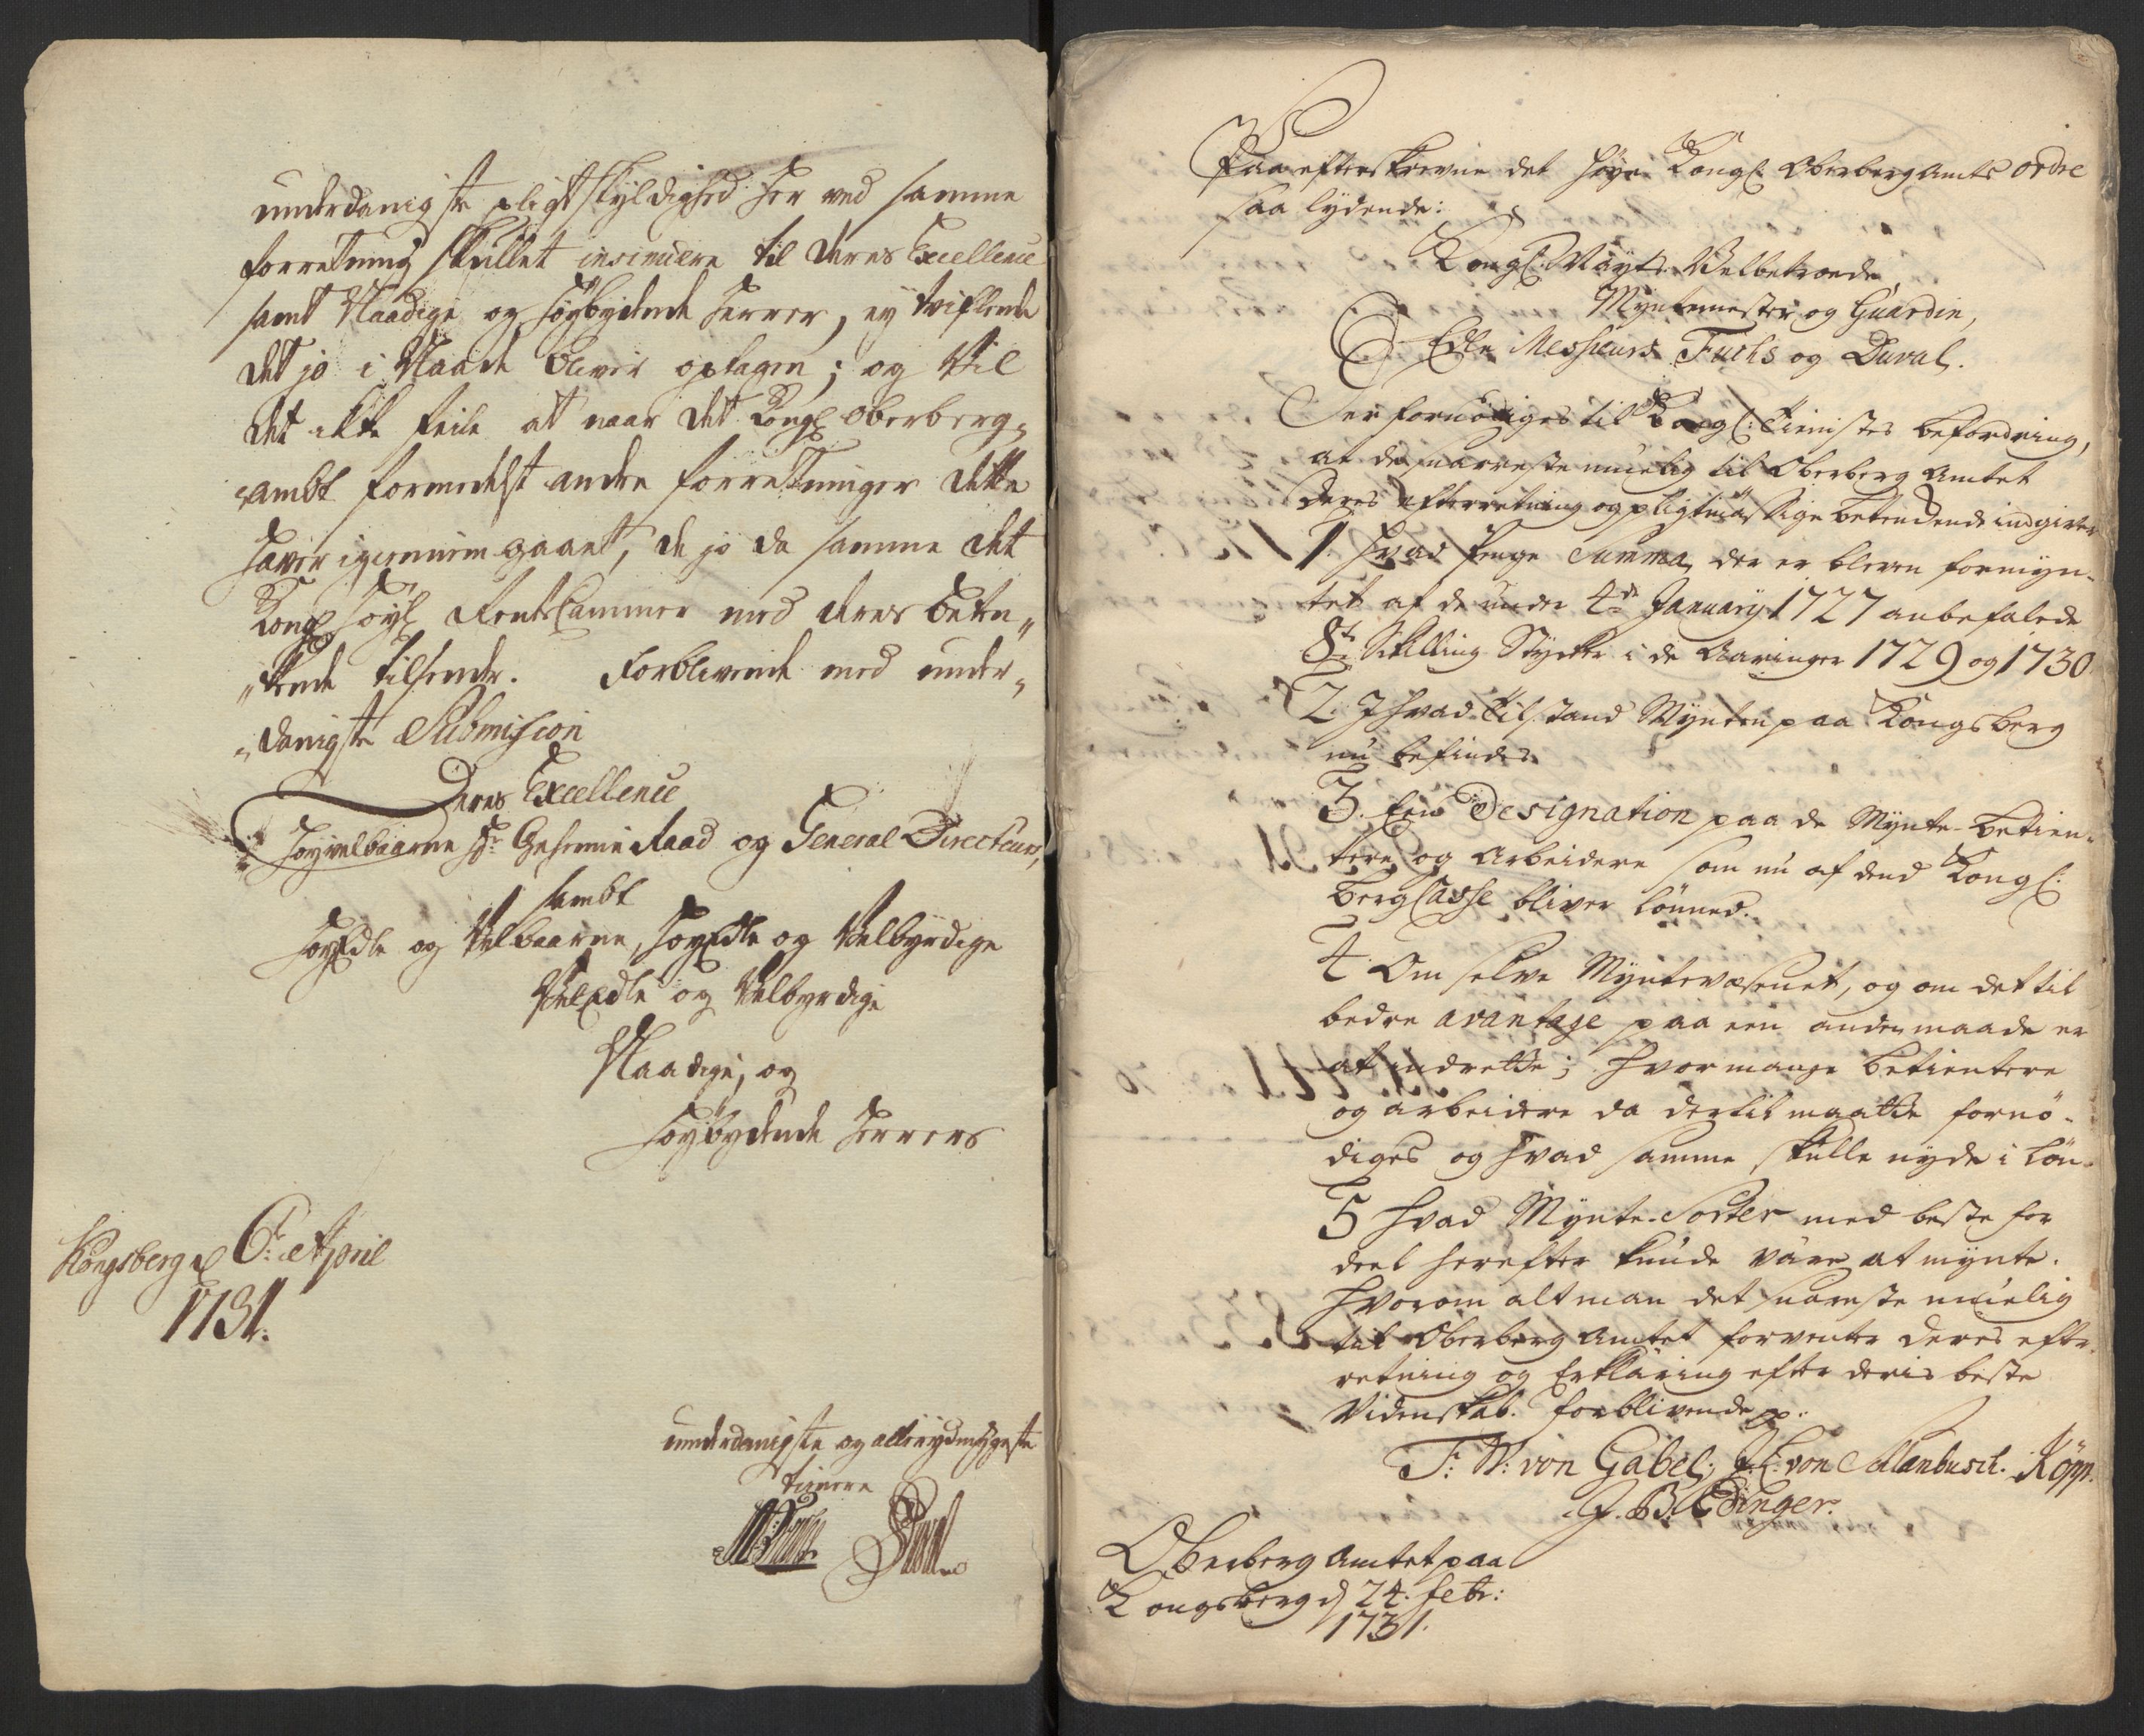 underdanigste pligtskyldighed her ved samme
forretning skullet insinuere til deres Excellence
samt Naadige og høybydende Herrer, ey tviflende
det jo i Naade bliver optagen; og vil
det ikke feile at naar det Kongl Oberberg„
„ambt formedelst andre forretninger dette
haver igiennem gaaet, de jo da samme det
Kongl Høyl RenteCammer med deres beten„
„kende tilsender. Forblivende med under„
„danigste Submission
Deres Excellence
Høyvelbaarne Hr Geheime Raad og General Directeur,
sambt
HøyEdle og Velbaarne, HøyEdle og Velbyrdige
VelEdle og Velbyrdige
Naadige, og
Høybydende Herrers
Kongsberg d 6t April
1731.
underdanigste og allerydmygeste
tienere
Duval
Paa efterskrevne det høye Kongl: OberbergAmts ordre
saa lydende:
Kongl: Mayts Velbetroede
Myntemester og Guardin,
Edle Messieurs Fuchs og Duval.
Der fornødiges til Kongl: Tienistes befordring,
at de snarreste muelig til Oberberg Amtet
deres efterretning og pligtmässige betenckende indgiver
1. Hvad Penge Summa der er bleven formyn-
tet af de under 4de January 1727 anbefalede
8te Skilling Stycker i de Aaringer 1729 og 1730
2. I hvad tilstand Mynten paa Kongsberg
nu befindes
3. Een Designation paa de Mynte-betien-
tere og Arbeidere som nu af dend Kongl:
BergCasse bliver lønned.
4. Om selve Myntevæsenet, og om det til
bedre avantage paa een anden maade er
at indrette; hvormange betientere
og arbeidere da dertil maatte fornø-
diges og hvad samme skulle nyde i løn.
5 Hvad Mynte-Sorter med beste for
deel herefter kunde være at mynte.
Hvorom alt man det snareste muelig
til Oberberg Amtet forventer deres efter
retning og Erkläring efter deris beste
Videnskab. forblivende p:
F: W: von Gabel; J:C: von Schlanbusch. Köpp.
J. B. Edinger.
Oberberg Amtet paa
Kongsberg d 24. febr:
1731.